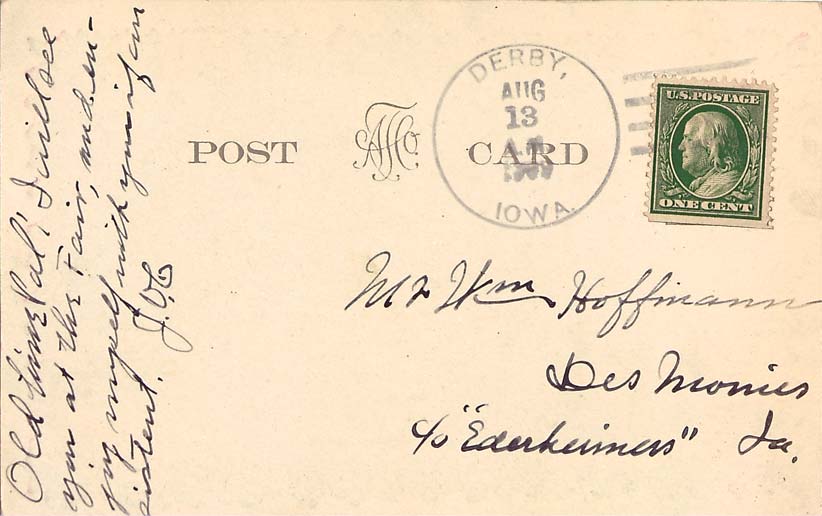 Old time Pal! I will see
you at the Fair, and en-
joy myself with you if am
existent. J.V.B
POST CARD
DERBY,
AUG
13
1909
IOWA.
U.S. POSTAGE
ONE CENT
Mr Wm Hoffmann
Des Monies
c/o "Ederheimers" Ia.